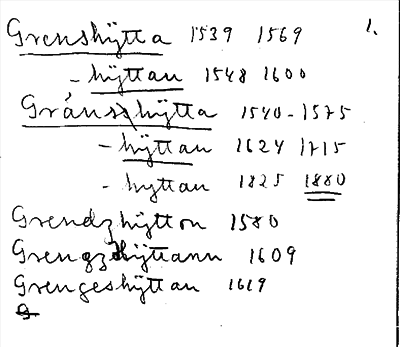 Grenshÿtta 1539 1569 1.
- hÿttan 1548 1600
Gränshÿtta 1540-1575
- hÿttan 1624 1715
- hyttan 1825 1880
Grendzhÿtton 1580
Grengzhÿttann 1609
Grengeshÿttan 1619